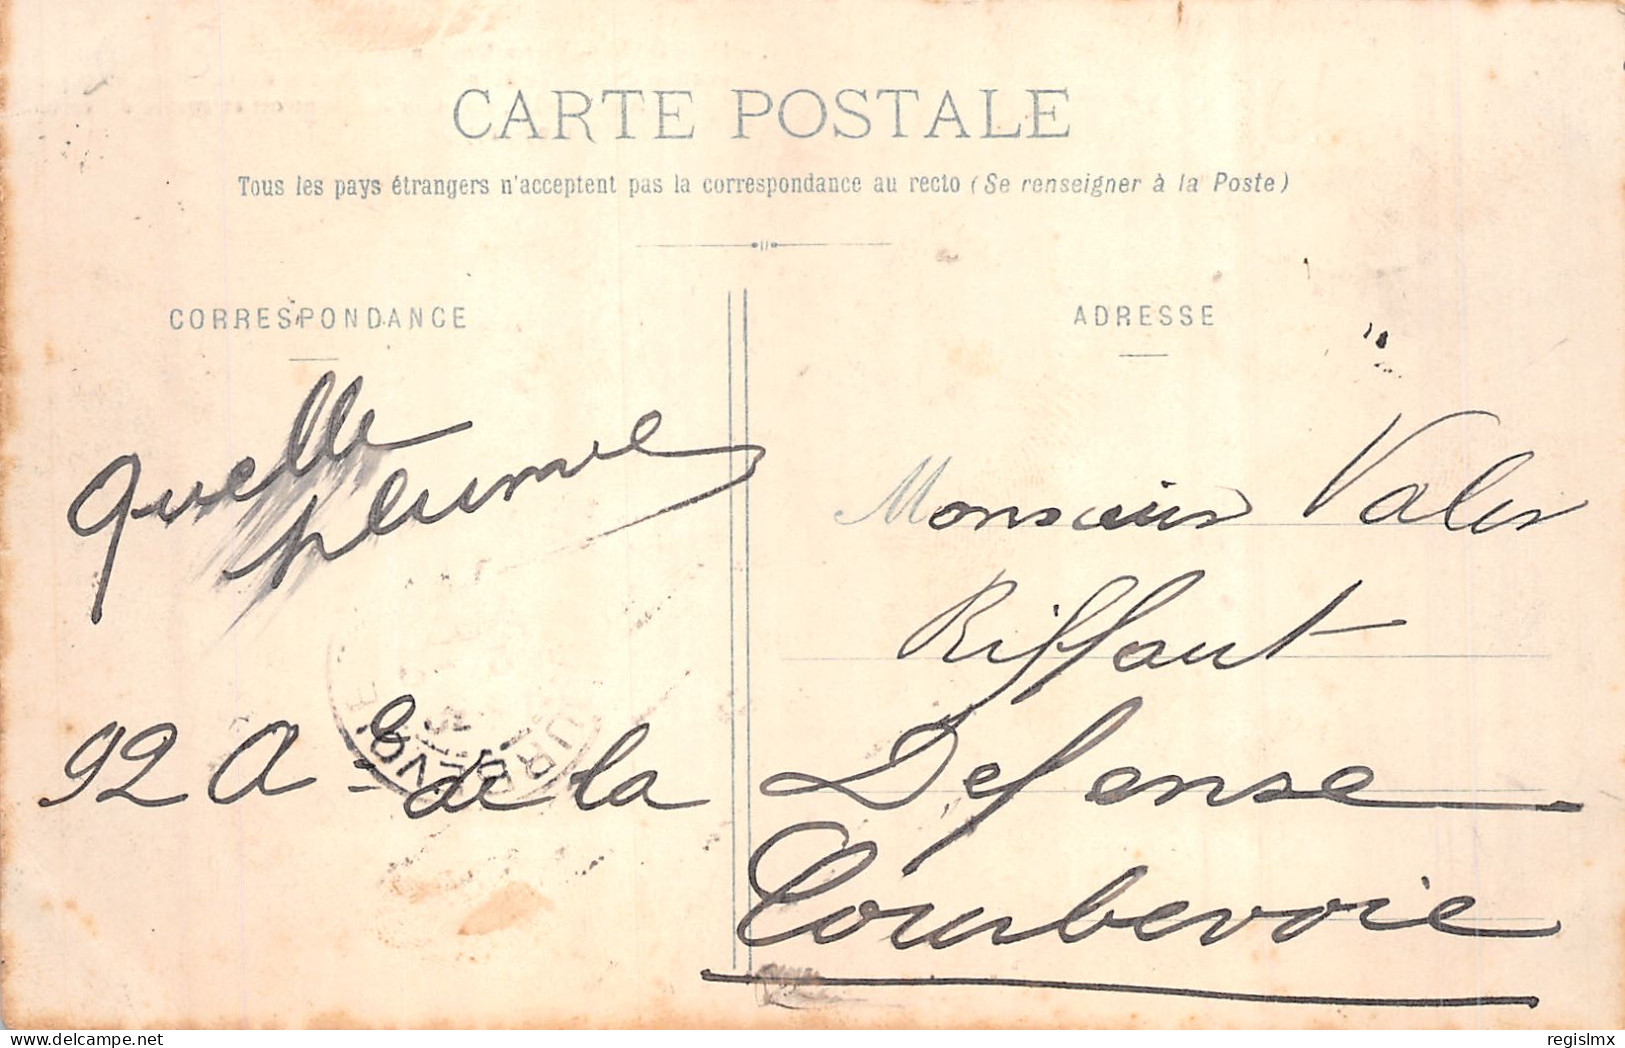 CARTE POSTALE
Tous les pays étrangers n'acceptent pas la correspondance au recto (Se renseigner à la Poste)
CORRESPONDANCE
ADRESSE
Quelle
plume
Monsieur
Riffaut
92 A e de la Defense
Courbevoie
delcampe.net
regislmx